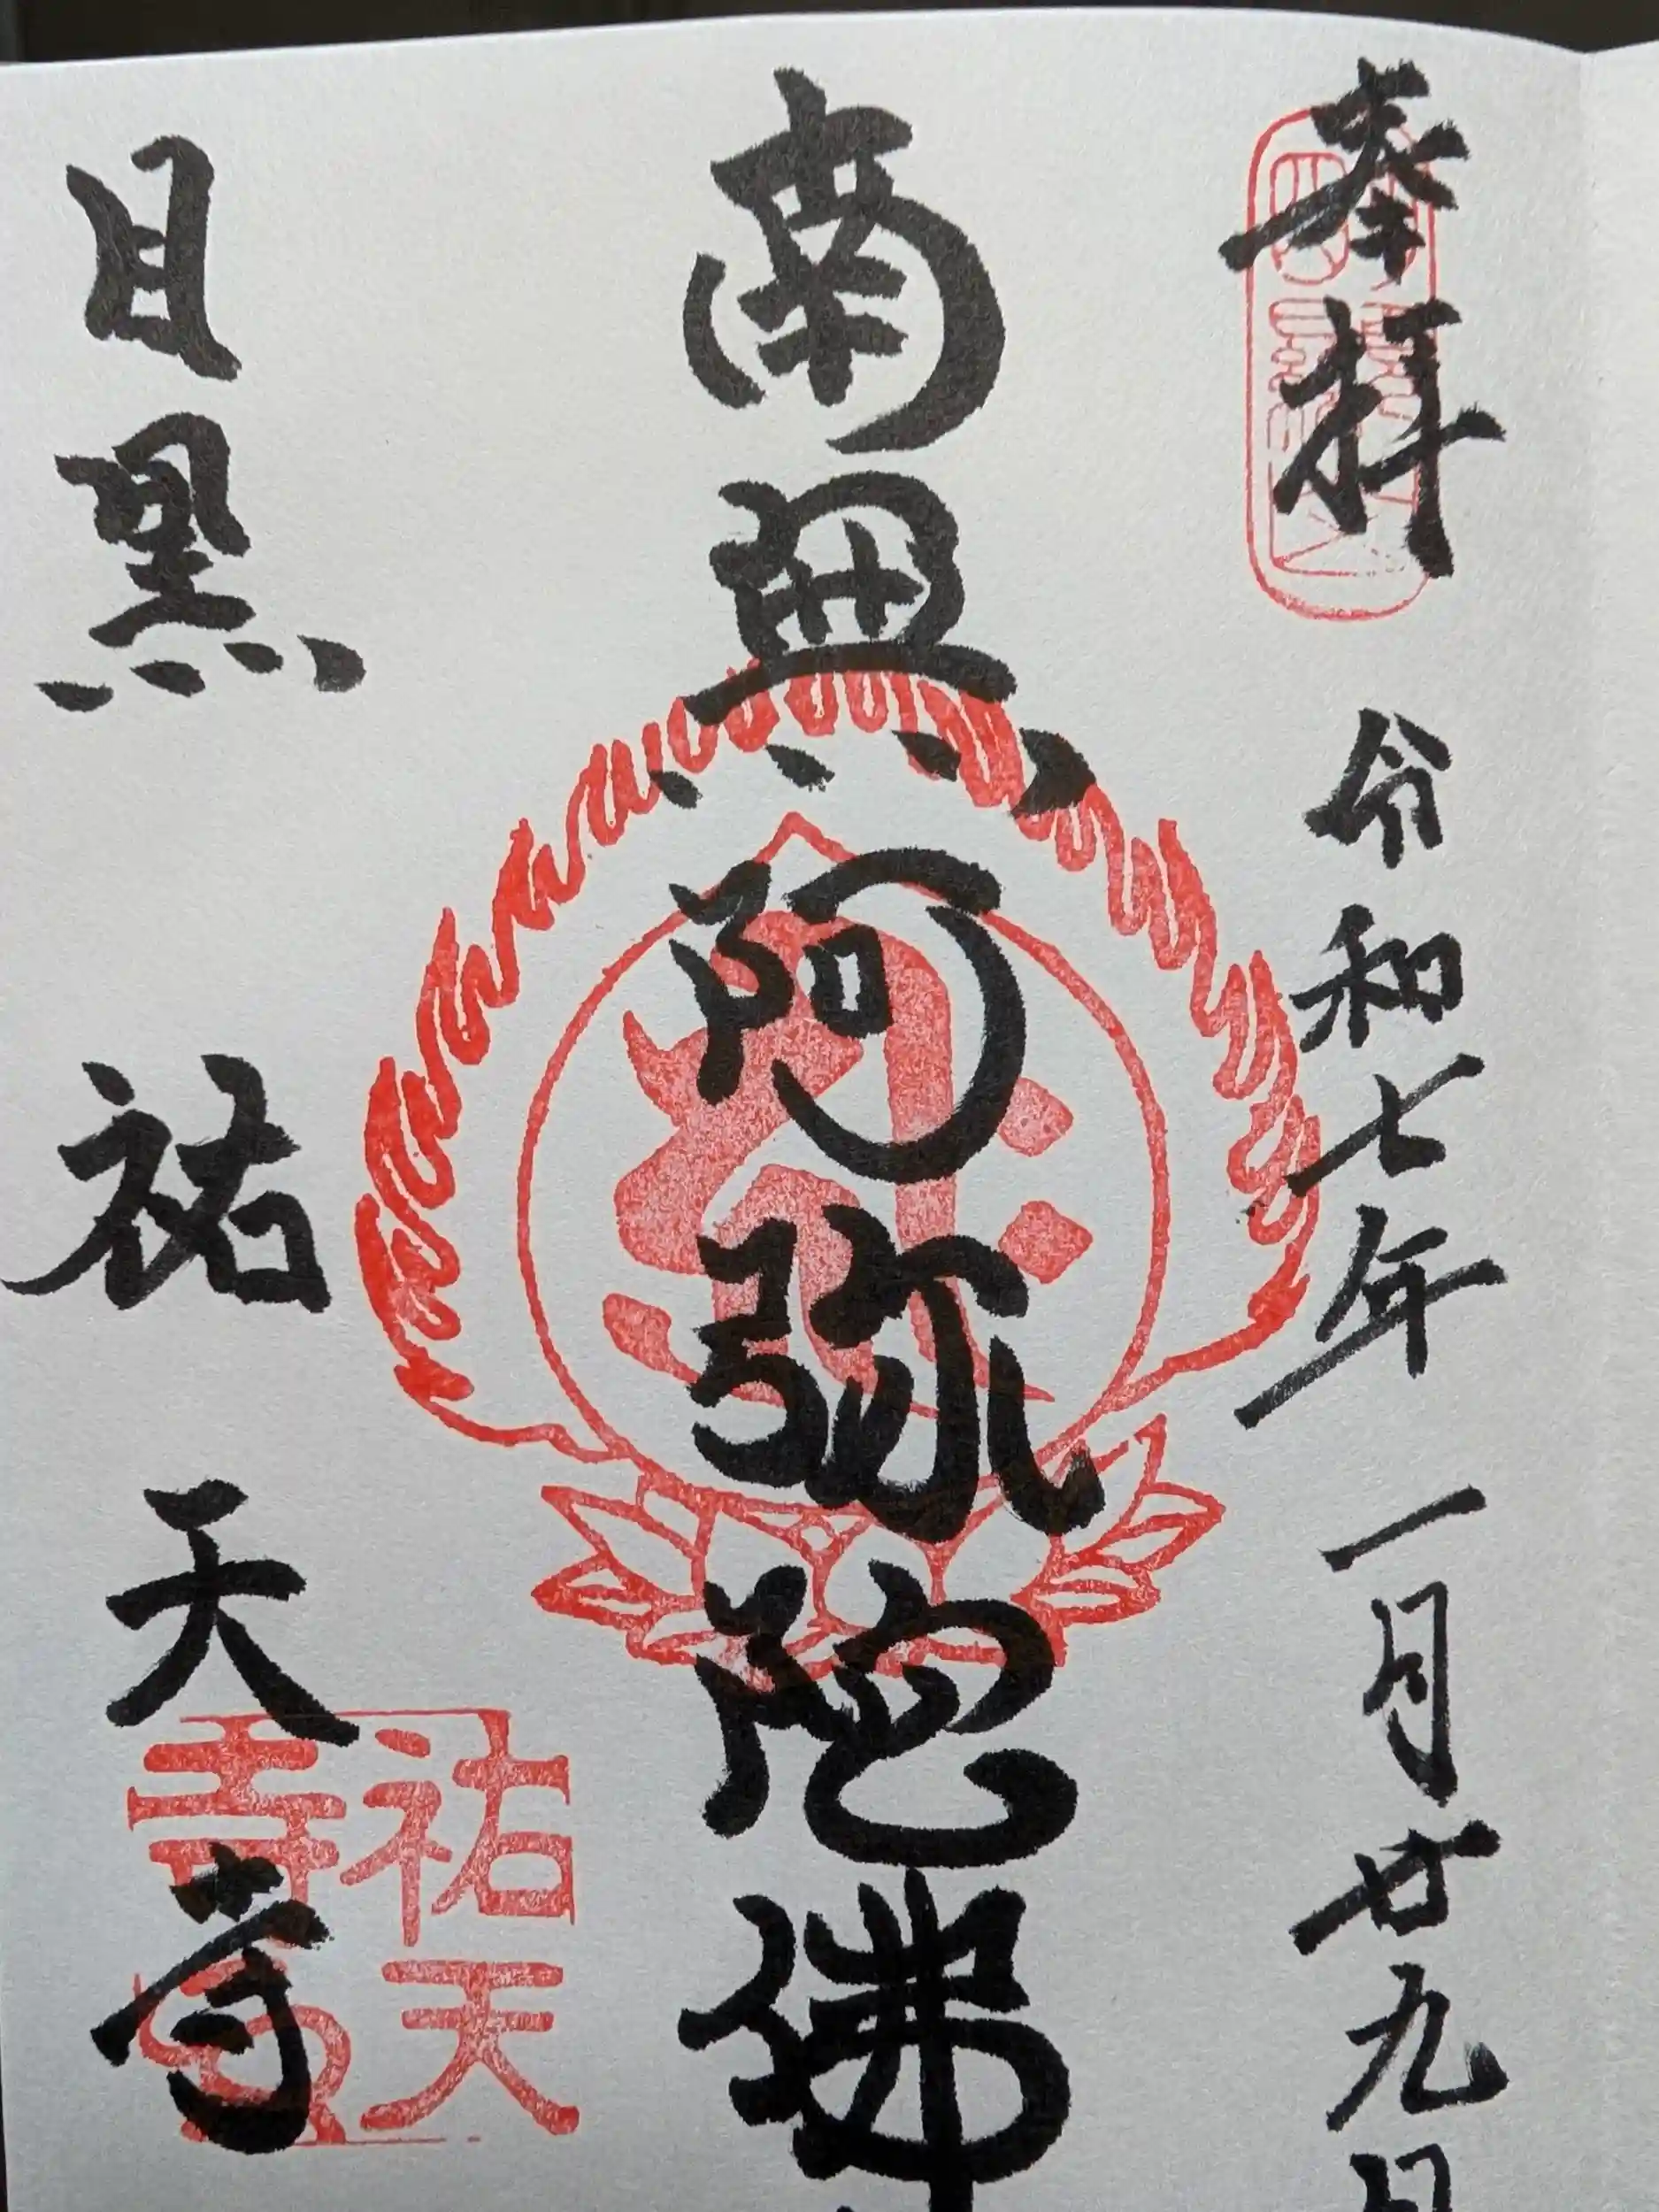 奉拝 令和七年一月廿九日
南無阿弥陀佛
目黒 祐天寺
祐天寺印